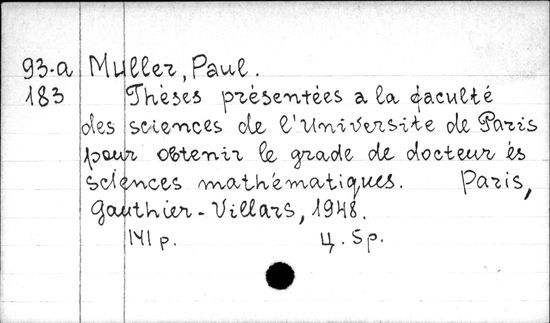 93-a Muller, Paul.
183 Thèses présentées a la faculté
des sciences de l'Universite de Paris
pour obtenir le grade de docteur ès
sciences mathématiques. Paris,
Gauthier-Villars, 1948.
141 p. Ц. Sp.